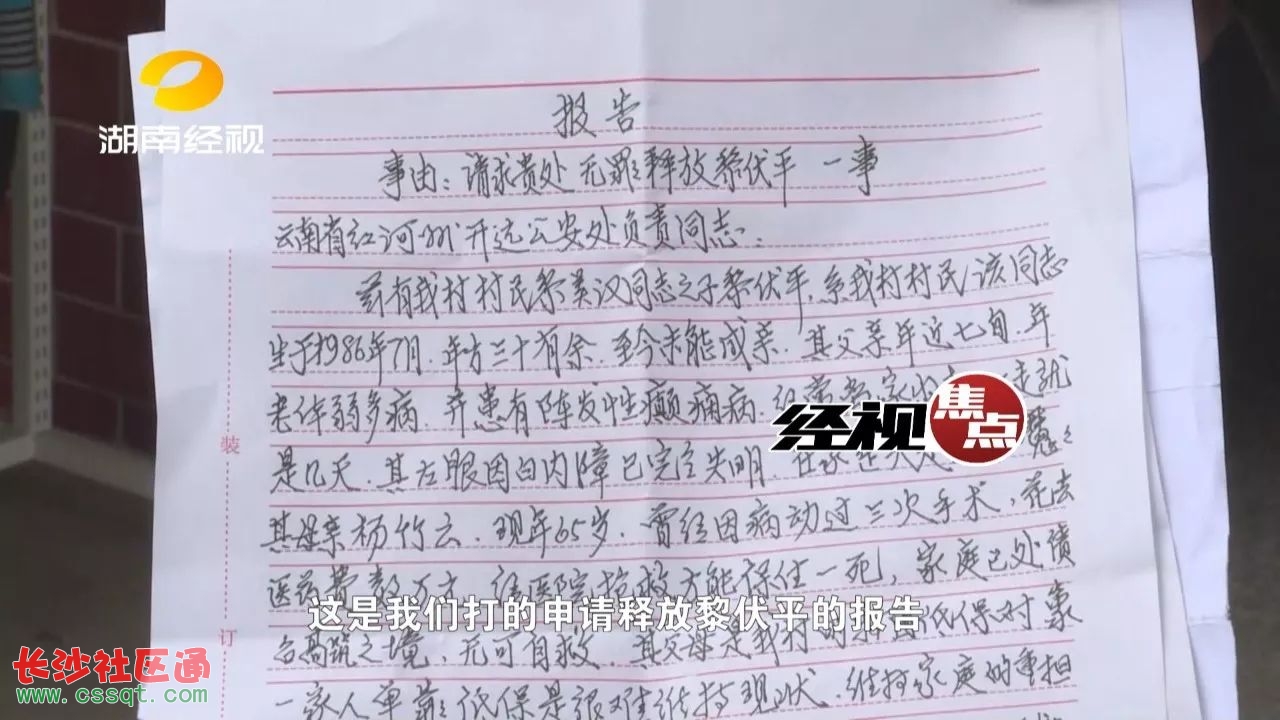 湖南经视
报告
事由：请求贵处无罪释放黎伏平一事
云南省红河州开远公安处负责同志：
兹有我村村民黎英汉同志之子黎伏平，系我村村民该同志
生于1986年7月．年方三十有余．至今未能成亲．其父亲年近七旬．年
老体弱多病．并患有阵发性癫痫病．
是几天．其左眼因白内障已完全失明．
其母亲杨竹云．现年65岁．曾经因病动过三次手术，花去
医药费数万元，经医院抢救方能保住一死，家庭已处债
台高筑之境，无可自救．其父母是我村的 低保对象
一家人单靠低保是很难维持现状．维持家庭的重担
经视焦点
装
订
这是我们打的申请释放黎伏平的报告
长沙社区通
www.cssqt.com